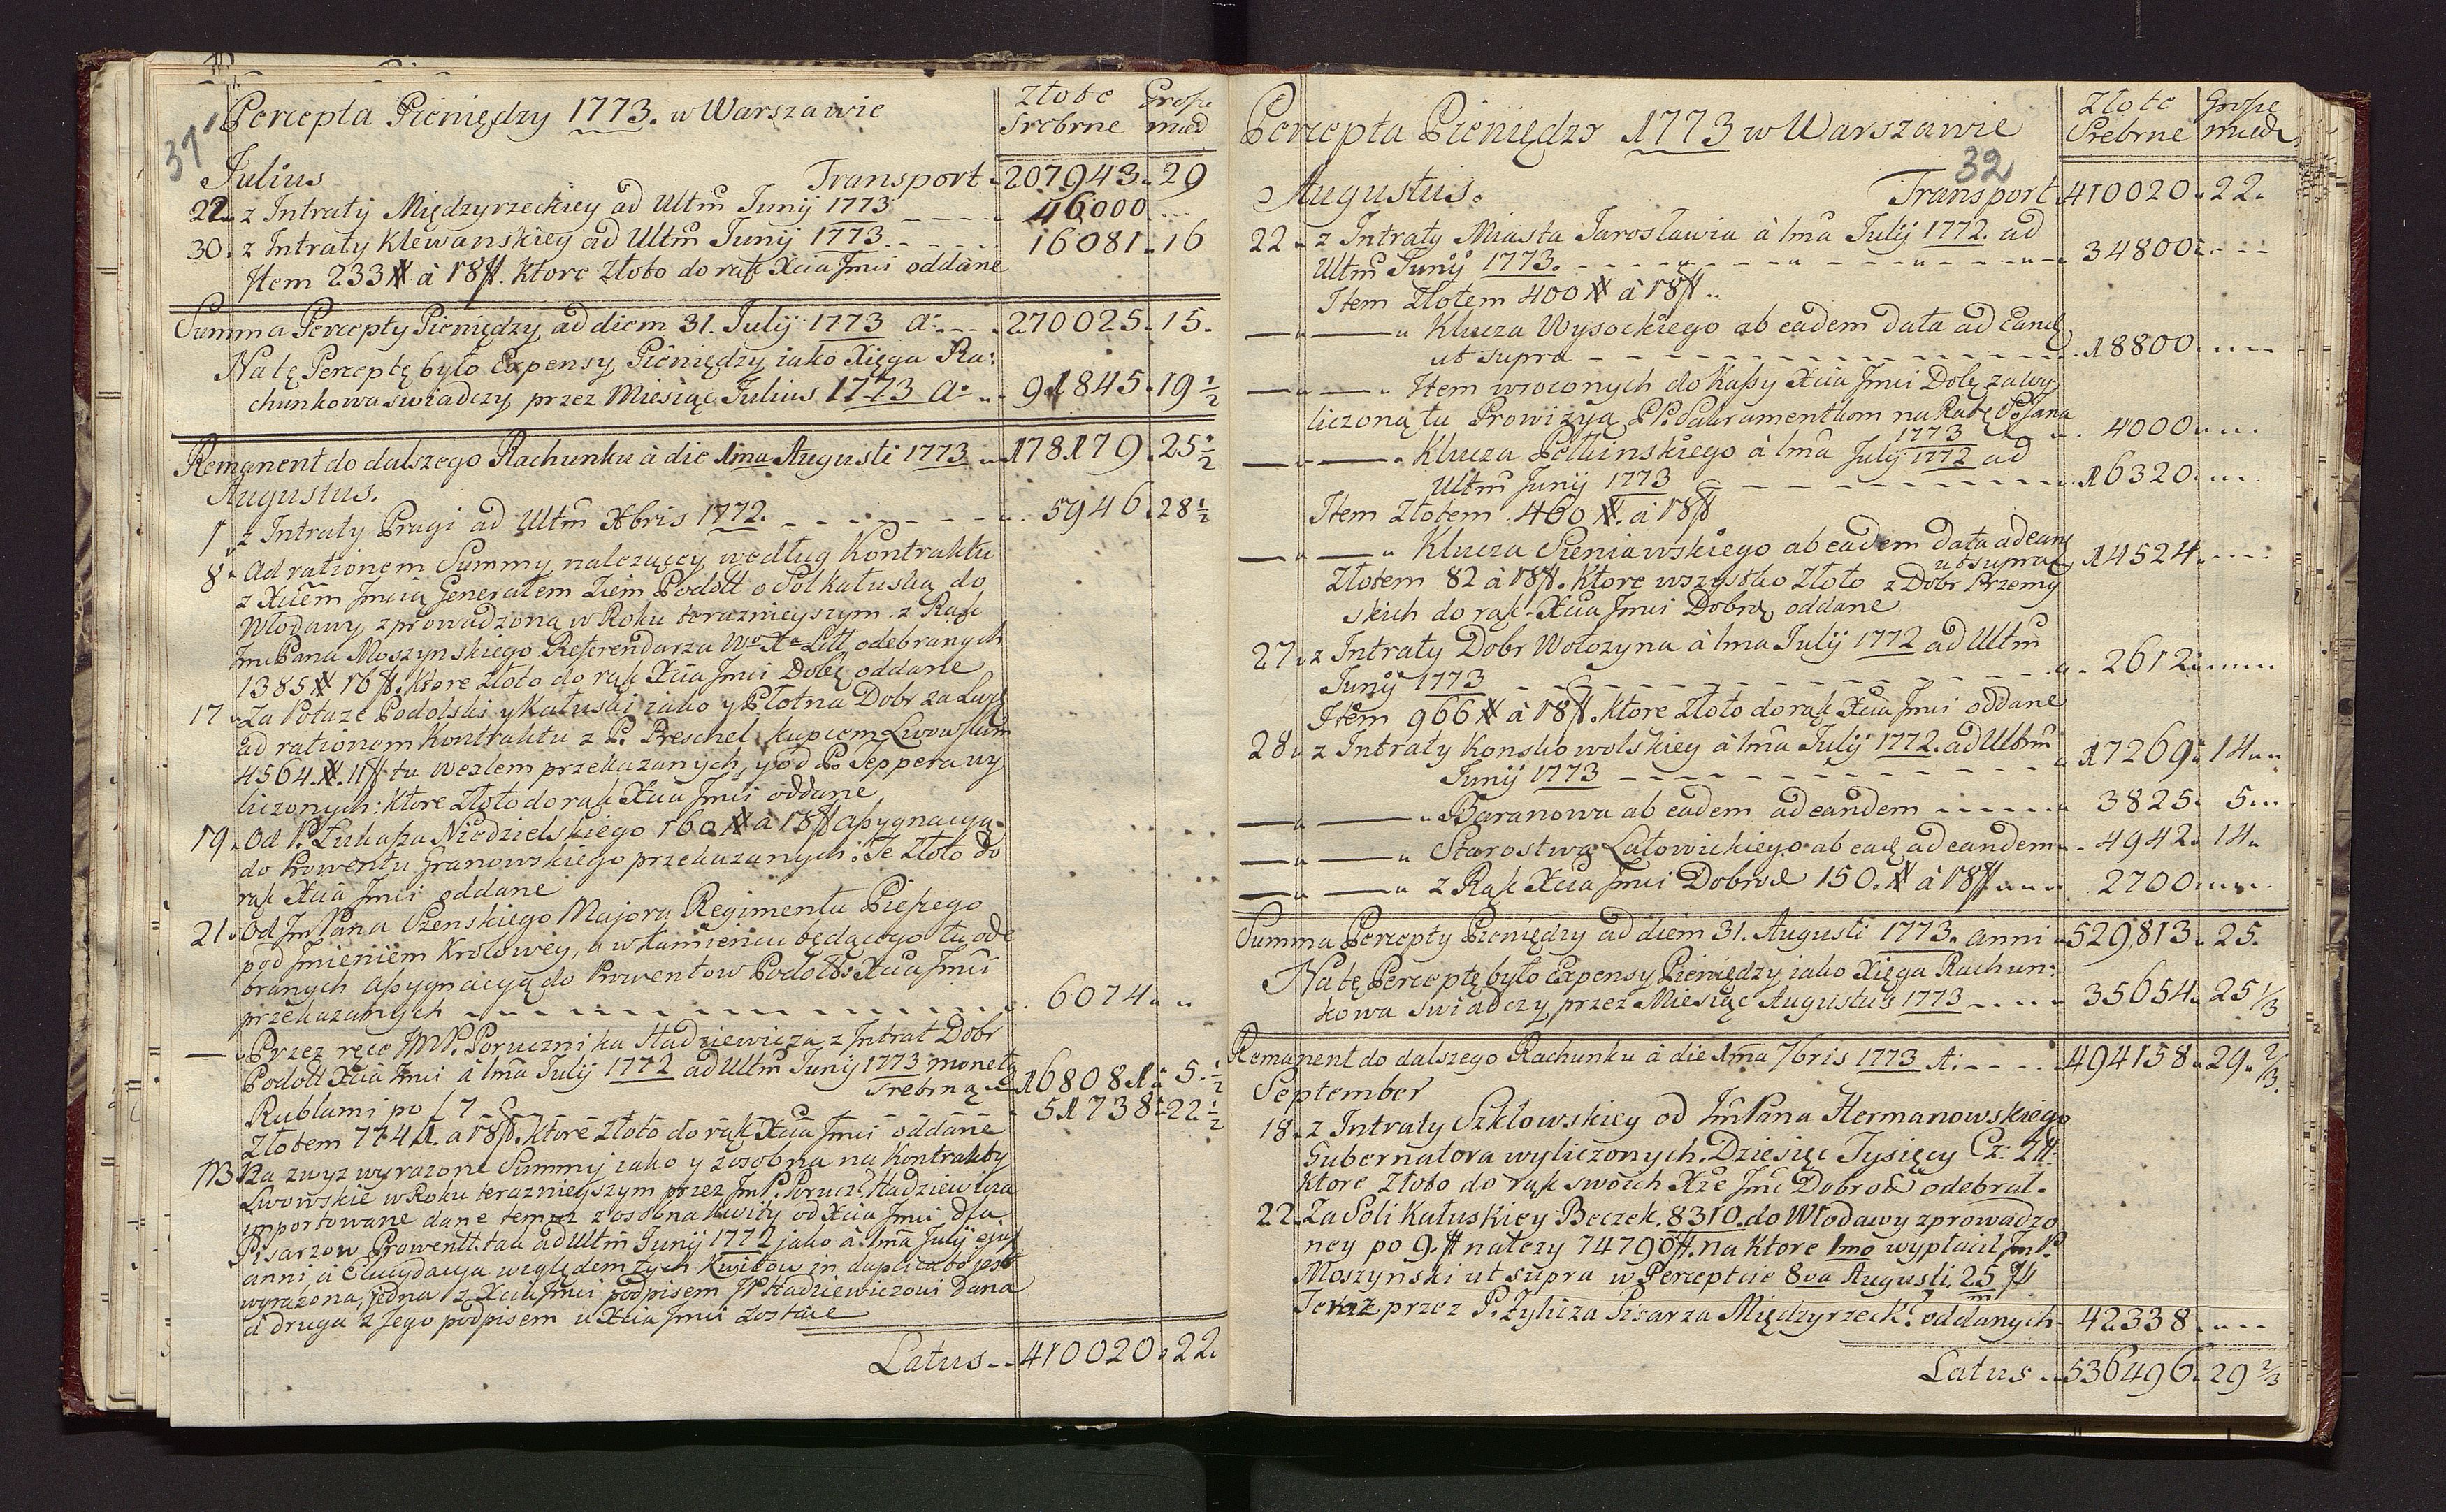 Percepta Pieniędzy 1773. w Warszawie
Złote Grosze
Srebrne mied
31
Julius Transport 207943. 29
22. z Intraty Międzyrzeckiey ad Ultm Junij 1773 46000
30. z Intraty Klewanskiey ad Ultm Junij 1773 16081. 16
Item 233 # à 18 fl. Ktore Złoto do rąk Xcia Jmci oddane
Summa Percepty Pieniędzy ad diem 31. Julij 1773 A: 270025. 15.
Na tę Perceptę było Expensy Pieniędzy iako Xięga Ra:
chunkowa swiadczy przez Miesiąc Julius 1773 A: 91845. 19 1/2
Remanent do dalszego Rachunku à die 1ma Augusti 1773 178179. 25 1/2
Augustus.
1 z Intraty Pragi ad Ultm Xbris 1772. 5946. 28 1/2
8. Ad rationem Summy nalezącey według Kontraktu
z Xciem Jmcią Generałem Ziem Podoll o Sol kałuską do
Włodawy zprowadzoną w Roku teraznieyszym z Rąk
Jmc Pana Moszynskiego Referendarza Wo Xa Litt odebranych
1385 # 16 fl. Ktore złoto do rąk Xcia Jmci Dobę oddane
17. Za Potaze Podolski y Kałuski iako y Płotna Dobr za Luzę
ad rationem Kontraktu z P. Preschel kupcem Lwowskim
4564 #. 11 fl tu Wexlem przekazanych, y od P. Teppera wy
liczonych: Ktore Złoto do rąk Xcia Jmci oddane
19. Od P. Łukasza Niedzielskiego 160 # à 18 fl Assygnacyą
do Prowentu Granowskiego przekazanych: Te Złoto do
rąk Xcia Jmci oddane
21. Od Jm Pana Szenskiego Majora Regimentu Pieszego
pod Jmieniem Krolowey, a w Kamieńcu będącego tu ode
branych Assygnacyą do Prowentow Podoll: Xcia Jmci
przekazanych 6074
— Przez ręce JMP. Porucznika Hadziewicza z Jntrat Dobr
Podoll Xcia Jmci à 1ma Julij 1772 ad Ultm Junij 1773 monetą
srebrną 168081. 5 1/2
Rublami po f 7 51738. 22 1/2
Złotem 774 #. à 18 fl. Ktore złoto do rąk Xcia Jmci oddane
NB Na zwyz wyrazone Summy iako y zosobna na Kontrakty
Lwowskie w Roku teraznieyszym przez Jm P. Porucz: Hadziewicza
importowane dane temuz z osobna Kwity od Xcia Jmci dla
Pisarzow Prowentt. tak ad Ultm Junij 1772 jako à 1ma Julij ejus
anni a Elucydacya względem tych Kwitow in duplicato jest
wyrazona, jedna z Xcia Jmci podpisem JP Hadziewiczowi Dana
a druga z Jego podpisem u Xcia Jmci zostaie
Latus 410020. 22.
Percepta Pieniędzy 1773 w Warszawie
Złote Grosze
Srebrne miedz
32
Augustus. Transport 410020. 22.
22. z Intraty Miasta Jarosławia à 1ma Julij 1772. ad
Ultm Junij 1773. 34800
Item Złotem 400 # à 18 fl.
— Klucza Wysockiego ab eadem data ad eand
ut supra 18800
— Item wroconych do Kassy Xcia Jmci Dolę za wy
liczoną tu Prowizyą PP. Sakramentkom na Ratę S. Jana
1773 4000
— Klucza Pełkinskiego à 1ma Julij 1772 ad
Ultm Junij 1773 16320
Item Złotem 460 #. à 18 fl
— Klucza Sieniawskiego ab eadem data ad ean
ut supra 14524
Złotem 82 à 18 fl. Ktore wszystko Złoto z Dobr Przemy
skich do rąk Xcia Jmci Dobrę oddane
27. z Intraty Dobr Wołozyna à 1ma Julij 1772 ad Ultm
Junij 1773 2612
Item 966 # à 18 fl. Ktore złoto do rąk Xcia Jmci oddane
28. z Intraty Konskowolskiey à 1ma Julij 1772. ad Ultm
Junij 1773 17269. 14
— Baranowa ab eadem ad eandem 3825. 5
— Starostwa Latowickiego ab eadę ad eandem 4942. 14
— z Rąk Xcia Jmci Dobrod 150. # à 18 fl 2700
Summa Percepty Pieniędzy ad diem 31. Augusti 1773. anni 529813. 25.
Na tę Perceptę było Expensy Pieniędzy iako Xięga Rachun:
kowa swiadczy przez Miesiąc Augustus 1773 35654. 25 1/3
Remanent do dalszego Rachunku à die 1ma 7bris 1773 A: 494158. 29. 2/3
September
18. z Intraty Szkłowskiey od Jm Pana Hermanowskiego
Gubernatora wyliczonych Dziesięc Tysięcy Cz: Zł:
Ktore Złoto do rąk swoich Xże Jmć Dobrod odebrał.
22. Za Soli Kałuskiey Beczek 8310. do Włodawy zprowadzo
ney po 9. fl nalezy 74790 fl. na Ktore 1mo wypłacił Jm P.
Moszynski ut supra w Perceptcie 8va Augusti 25 m fl
Teraz przez P. Zylicza Pisarza Międzyrzeck: oddanych 42338
Latus 536496. 29 2/3